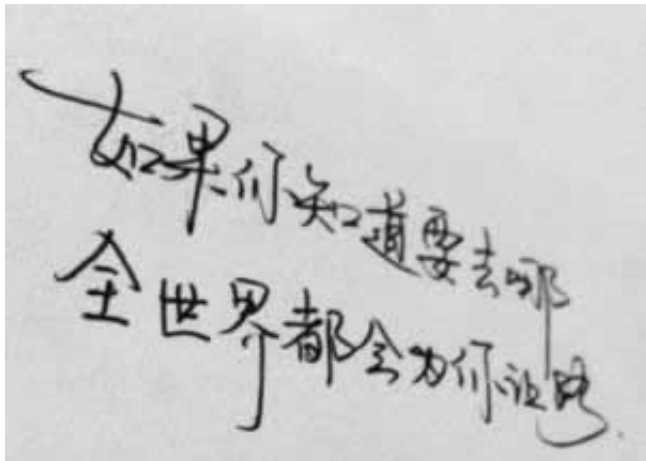 如果你知道要去哪
全世界都会为你让路.